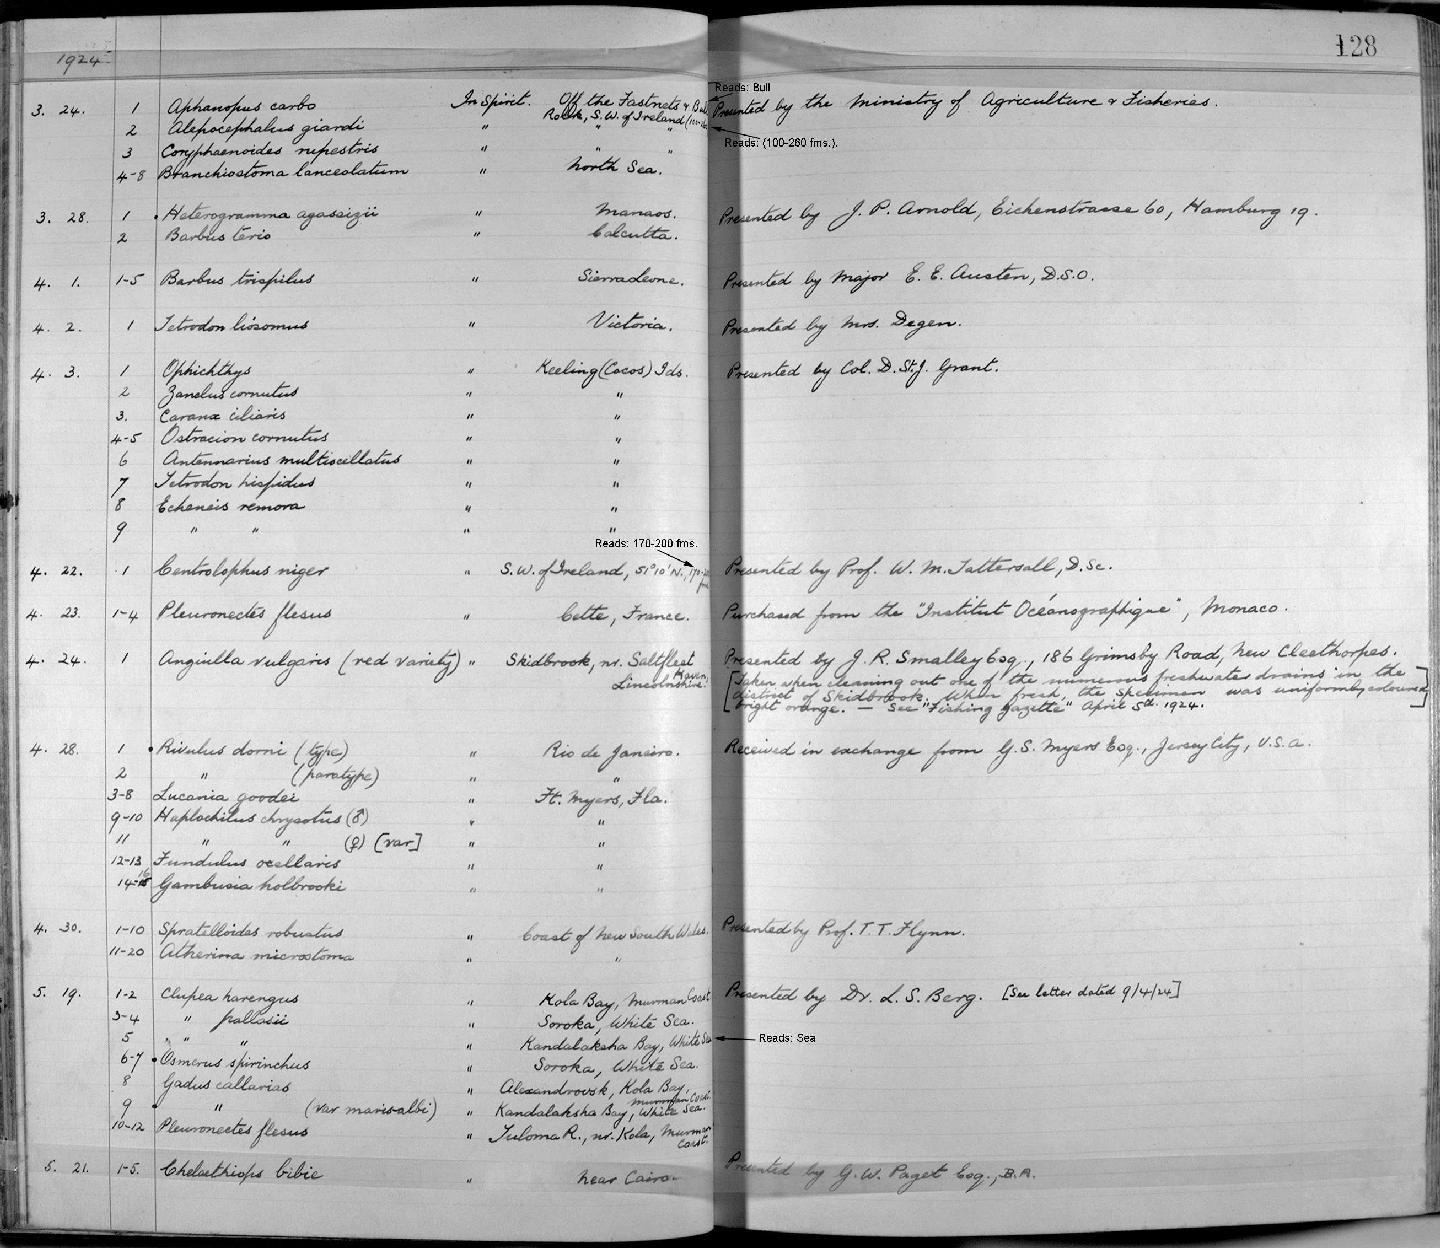 1924
128
Reads: Bull
3. 24. 1 Aphanopus carbo In Spirit. Off the Fastnets & Bull Presented by the Ministry of Agriculture & Fisheries.
2 Alepocephalus giardi " Rock, S.W. of Ireland (100-260
Reads: (100-260 fms.).
3 Coryphaenoides rupestris " " "
4-8 Branchiostoma lanceolatum " North Sea.
3. 28. 1 Heterogramma agassizii " Manaos. Presented by J. P. Arnold, Eichenstrasse 60, Hamburg 19.
2 Barbus terio " Calcutta.
4. 1. 1-5 Barbus trispilus " Sierra Leone. Presented by Major E. E. Austen, D.S.O.
4. 2. 1 Tetrodon liosomus " Victoria. Presented by Mrs. Degen.
4. 3. 1 Ophichthys " Keeling (Cocos) Ids. Presented by Col. D. St. J. Grant.
2 Zanclus cornutus " "
3. Caranx ciliaris " "
4-5 Ostracion cornutus " "
6 Antennarius multiocellatus " "
7 Tetrodon hispidus " "
8 Echeneis remora " "
9 " " " "
Reads: 170-200 fms.
4. 22. 1 Centrolophus niger " S.W. of Ireland, 51°10' N., 170-200 fms Presented by Prof. W. M. Tattersall, D.Sc.
4. 23. 1-4 Pleuronectes flesus " Cette, France. Purchased from the "Institut Océanographique", Monaco.
4. 24. 1 Anguilla vulgaris (red variety) " Skidbrook, nr. Saltfleet Haven, Lincolnshire. Presented by J. R. Smalley Esq., 186 Grimsby Road, New Cleethorpes.
[Taken when cleaning out one of the numerous freshwater drains in the
district of Skidbrook. When fresh, the specimen was uniformly coloured
bright orange. — See "Fishing Gazette" April 5th 1924.]
4. 28. 1 Rivulus dorni (type) " Rio de Janeiro. Received in exchange from G. S. Myers Esq., Jersey City, U.S.A.
2 " (paratype) " "
3-8 Lucania goodei " Ft. Myers, Fla.
9-10 Haplochilus chrysotus (♂) " "
11 " " (♀) [var] " "
12-13 Fundulus ocellaris " "
14-16 Gambusia holbrooki " "
4. 30. 1-10 Spratelloides robustus " Coast of New South Wales. Presented by Prof. T. T. Flynn.
11-20 Atherina microstoma " "
5. 19. 1-2 Clupea harengus " Kola Bay, Murman Coast Presented by Dr. L. S. Berg. [See letter dated 9/4/24]
3-4 " pallasii " Soroka, White Sea.
5 " " " Kandalaksha Bay, White Sea
Reads: Sea
6-7 Osmerus spirinchus " Soroka, White Sea.
8 Gadus callarias " Alexandrovsk, Kola Bay, Murman Coast.
9 " (var maris-albi) " Kandalaksha Bay, White Sea.
10-12 Pleuronectes flesus " Tuloma R., nr. Kola, Murman Coast.
5. 21. 1-5. Chelaethiops bibie " Near Cairo. Presented by G. W. Paget Esq., B.A.